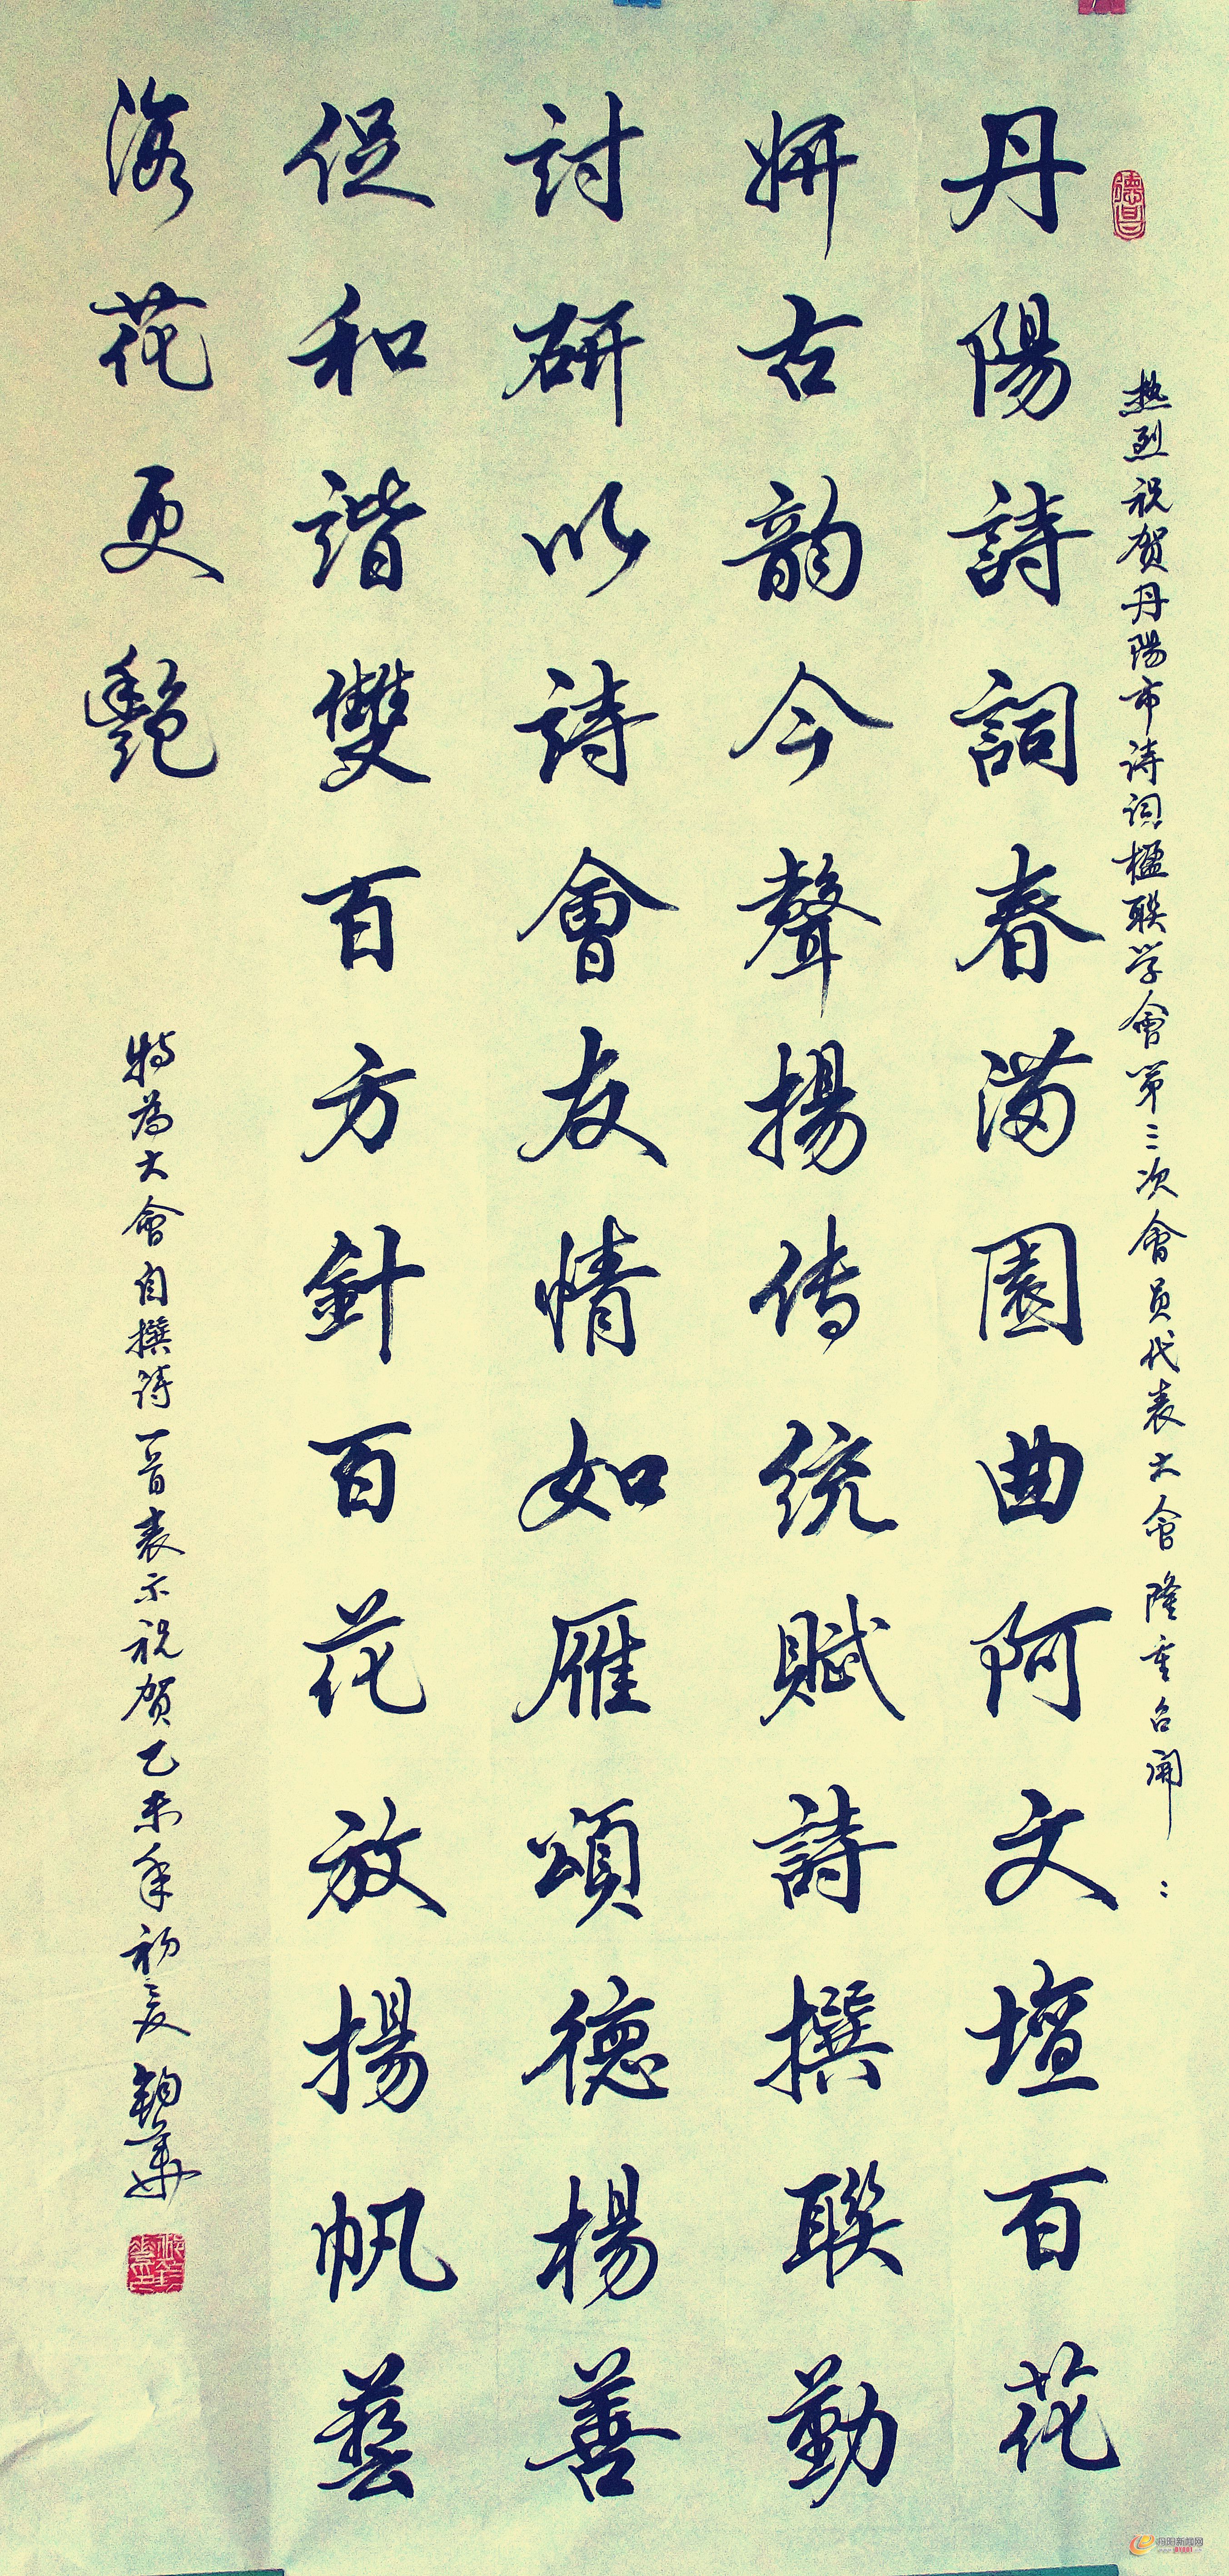 热烈祝贺丹陽市诗词楹联学會第三次會员代表大會隆重召開：
丹陽詩詞春满園曲阿文壇百花
妍古韵今聲揚传统賦詩撰聯勤
討研以詩會友情如雁頌德楊善
促和諧雙百方針百花放揚帆藝
海花更艷
特為大會自撰诗一首表示祝贺乙未年初夏
钧華
德昌
丹阳新闻网